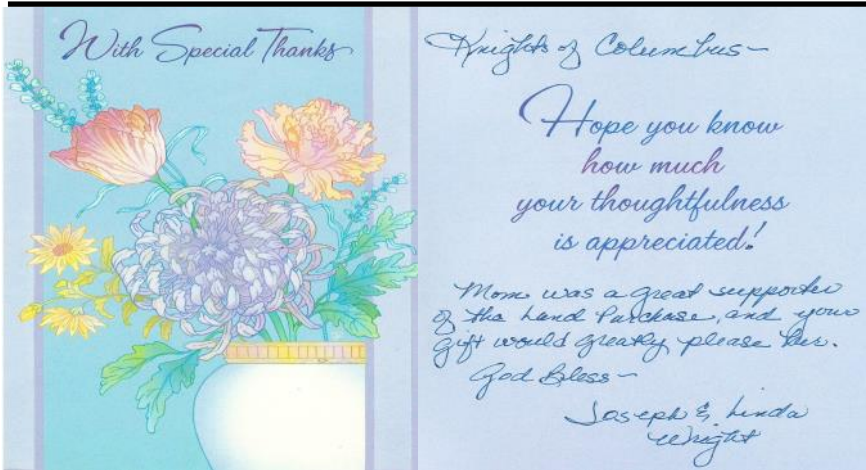 With Special Thanks
Knights of Columbus—
Hope you know
how much
your thoughtfulness
is appreciated!
Mom was a great supporter
of the Land Purchase, and your
gift would greatly please her.
God Bless—
Joseph & Linda
Wright